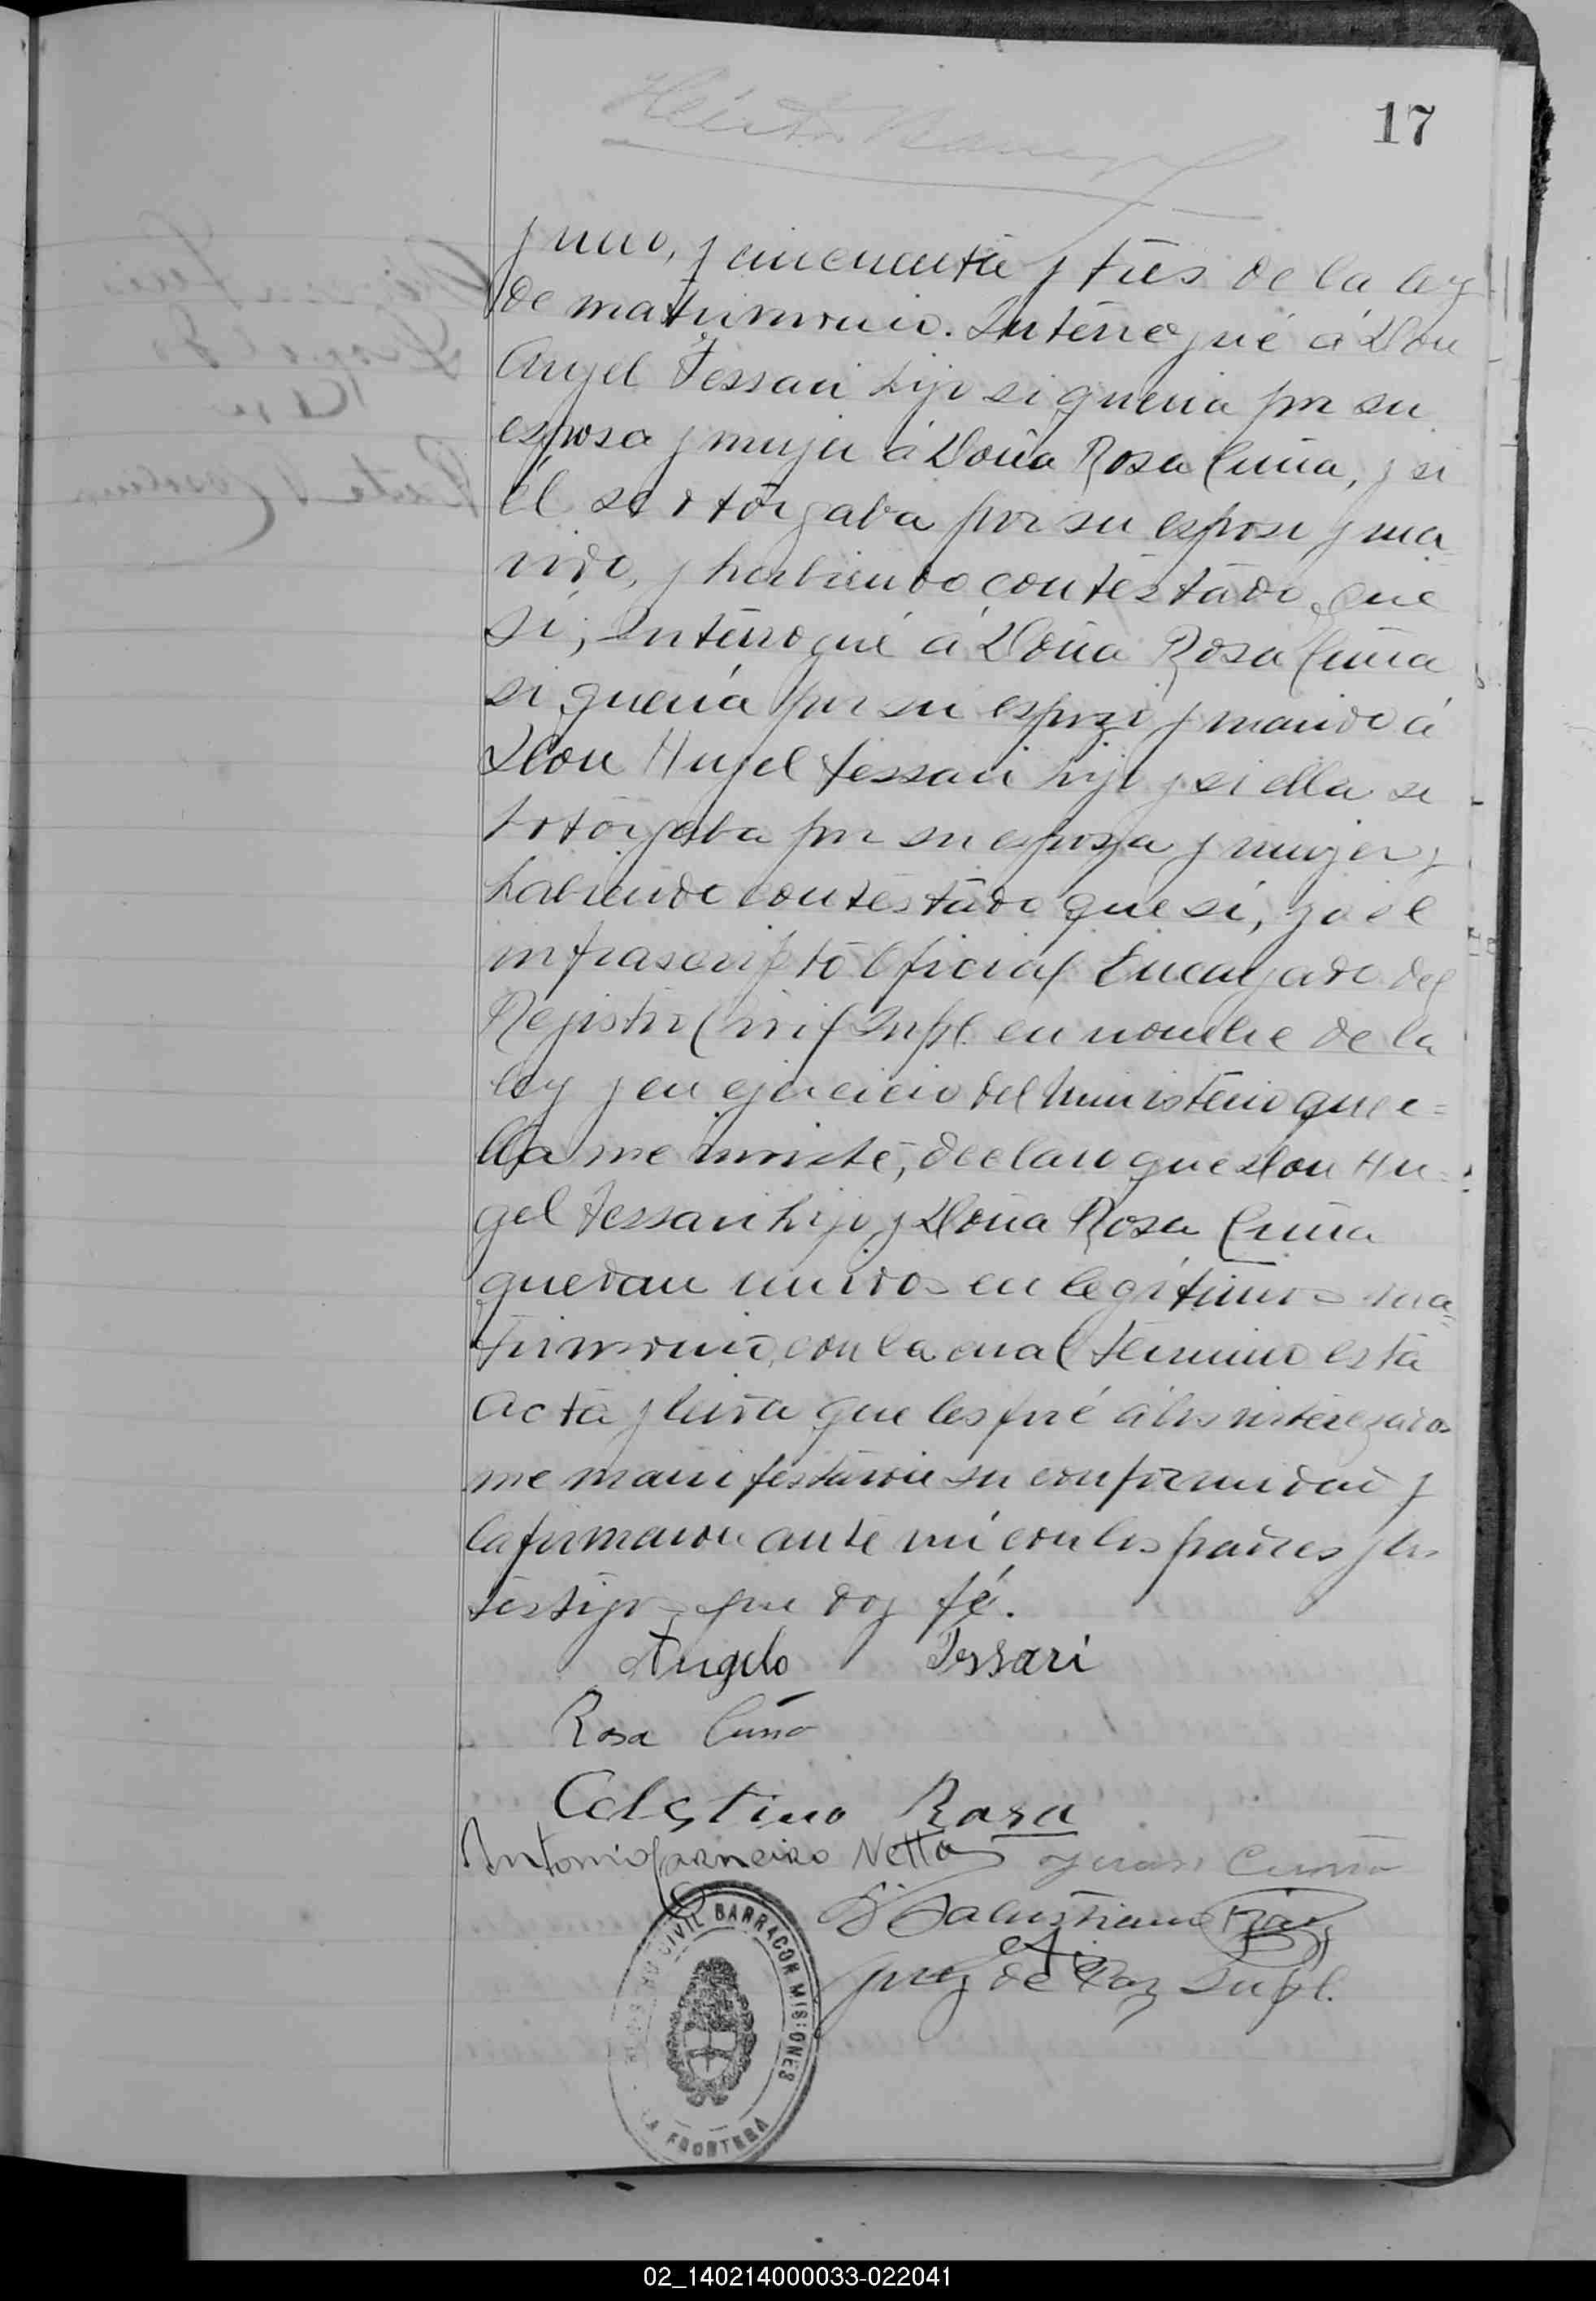 17
y uno, y cincuenta y tres de la ley
de matrimonio. Interrogué á Don
Angel Tessari hijo si queria por su
esposa y mujer á Doña Rosa Cuña, y si
él se otorgaba por su esposo y ma-
rido, y habiendo contestado que
Si; Interrogué á Doña Rosa Cuña
si quería por su espozo y marido á
Don Angel Tessari hijo y si ella se
otorgaba por su espoza y mujer y
habiendo contestado que si, yo el
infrascripto Oficial Encargado del
Registro Civil Supl. en nombre de la
ley y en ejercicio del Ministerio que e=
lla me inviste, declaro que Don An=
gel Tessari hijo y Doña Rosa Cuña
quedan unidos en legítimos ma=
trimonio, con la cual termino esta
acta y leida que les fué á los interezados
me manifestaron su conformidad y
la firmaron ante mí con los padres y los
testigos que doy fé.
Angelo Tessari
Rosa Cuña
Celestino Rasa
Antonio Carneiro Netto
Cuña
Salustiano
Juez de Paz Supl.
CIVIL BARRACON MISIONES
LA FRONTERA
02_140214000033-022041